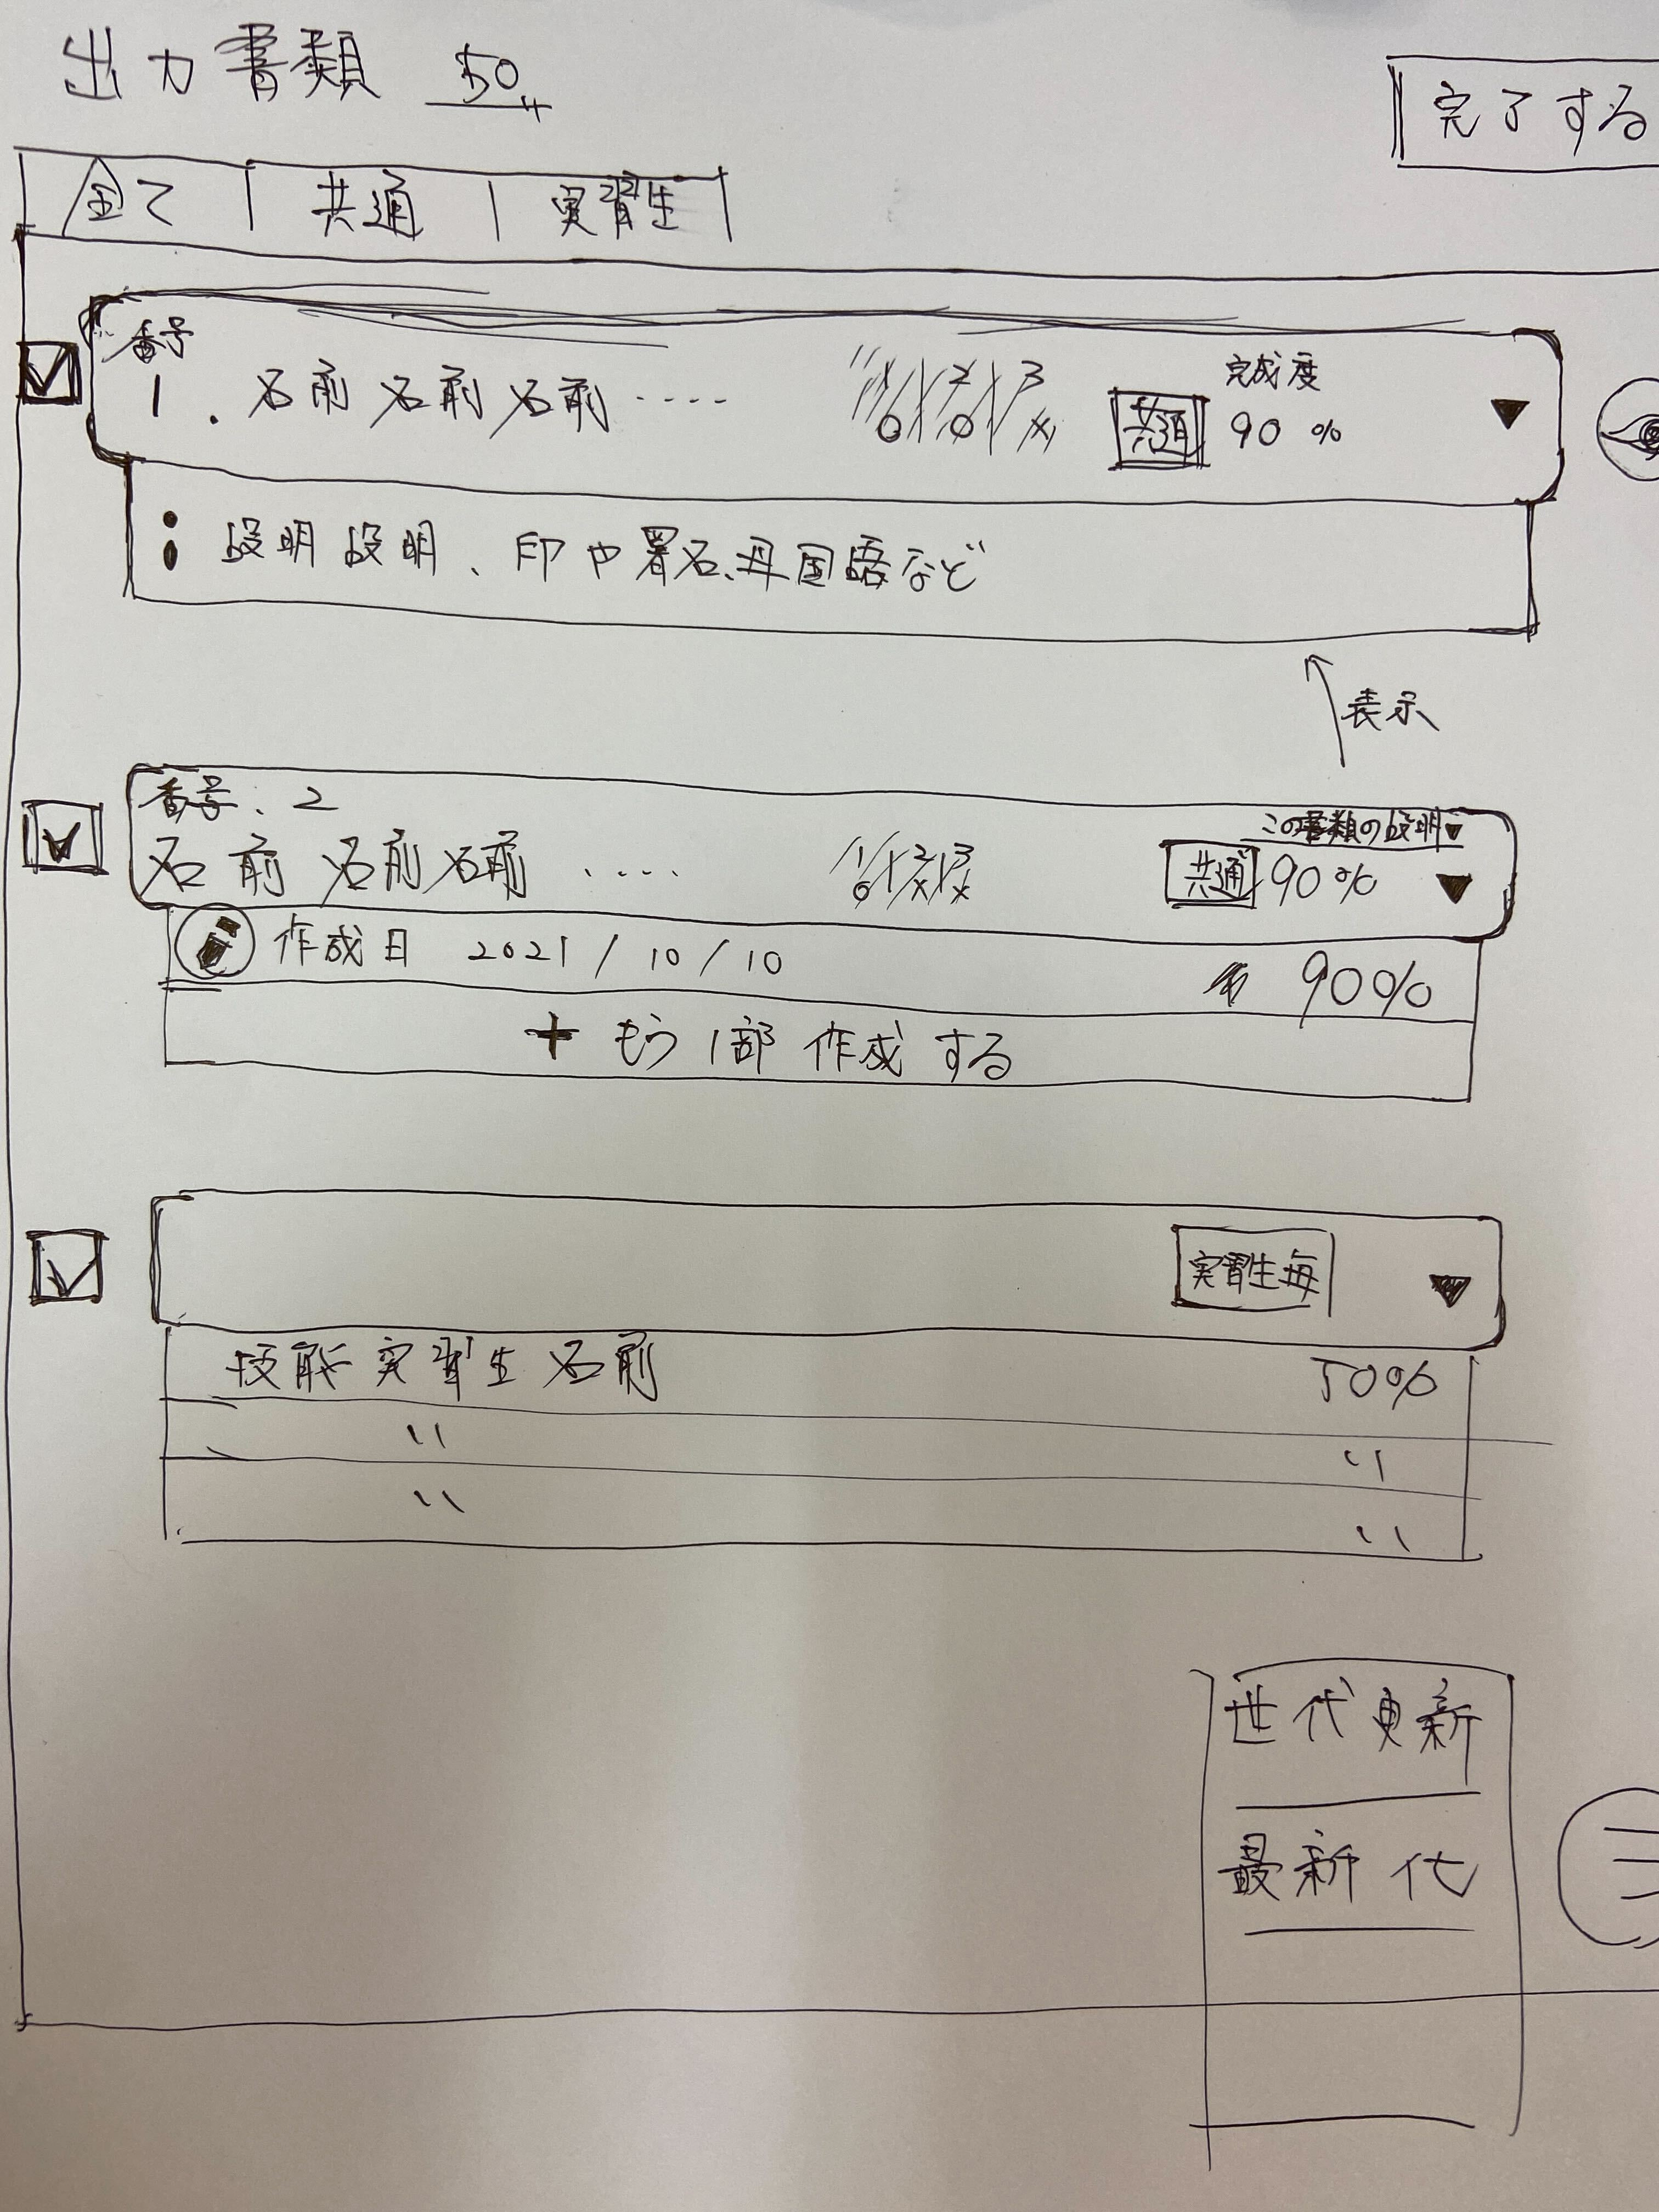 出力書類 50件
完了する
全て | 共通 | 実習生
番号
1. 名前 名前 名前 ····
1 2 3
○ ○ ×
共通
完成度
90 %
説明 説明、印や署名、母国語など
表示
番号: 2
名前 名前 名前 ····
1 2 3
○ × ×
この書類の説明▼
共通 90%
作成日 2021 / 10 / 10
90%
+ もう1部 作成する
実習生毎
技能実習生名前 50%
〃 〃
〃 〃
世代更新
最新化